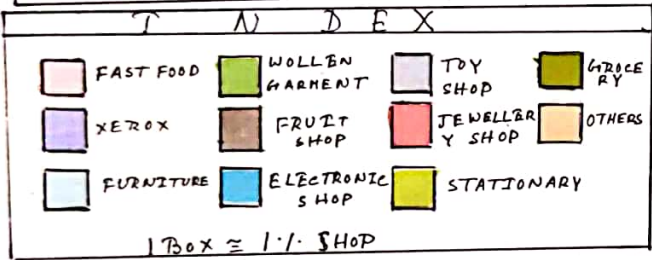 INDEX
FAST FOOD
WOLLEN
GARMENT
TOY
SHOP
GROCE
RY
XEROX
FRUIT
SHOP
JEWELLER
Y SHOP
OTHERS
FURNITURE
ELECTRONIC
SHOP
STATIONARY
1 BOX ≅ 1·/· SHOP